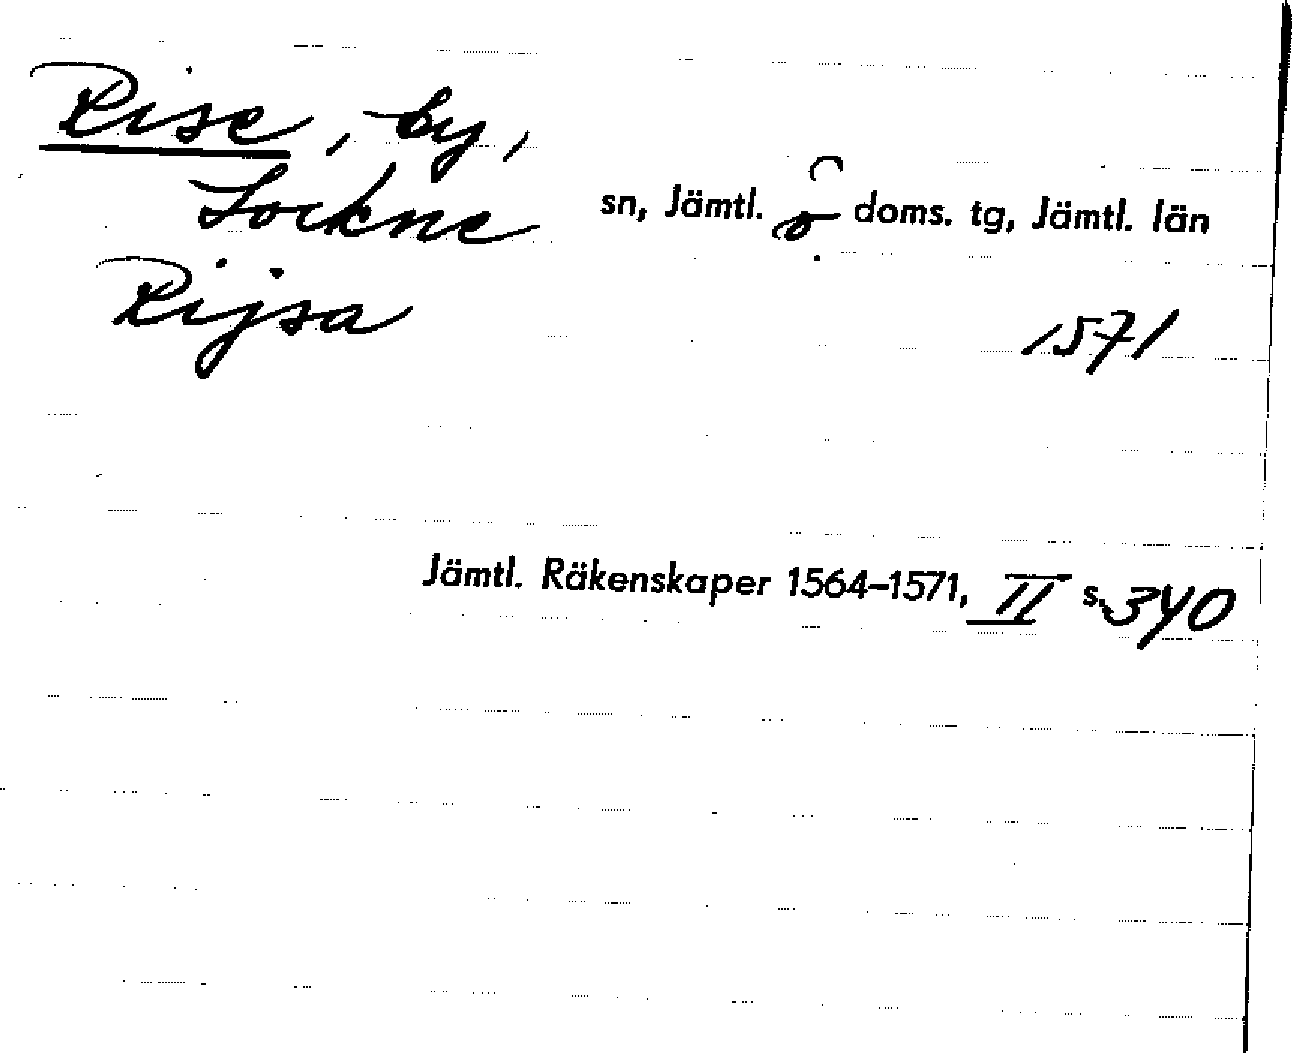 Rise, by,
Lockne sn, Jämtl. ö doms. tg, Jämtl. län
Rijsa
1571
Jämtl. Räkenskaper 1564–1571, II s. 340